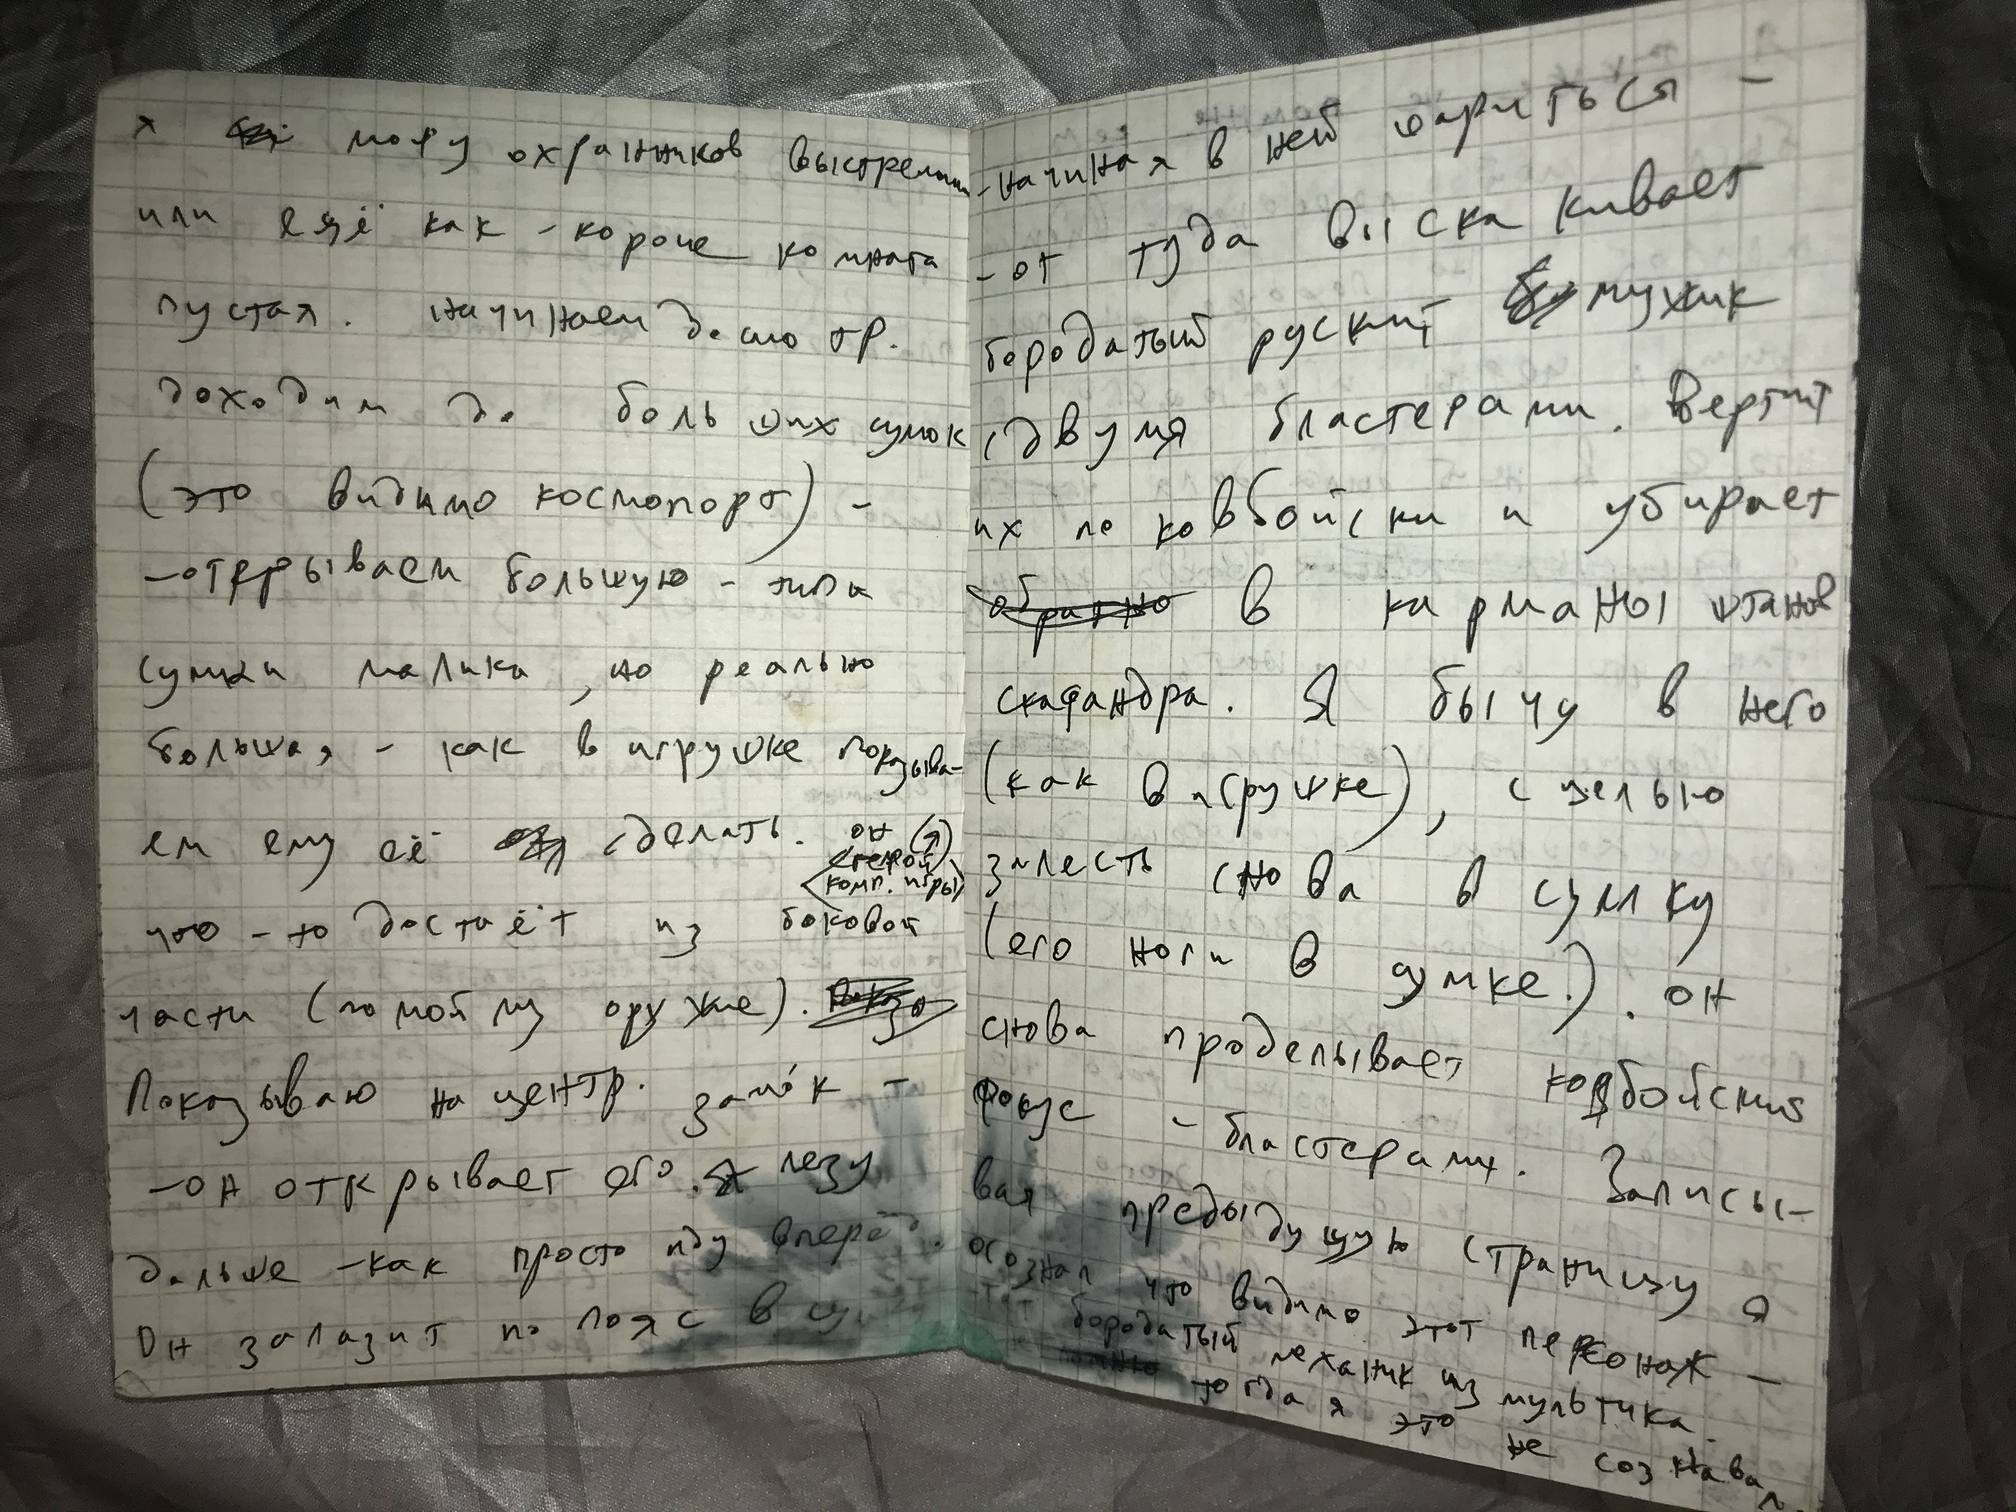 я могу охранников выстрелами
или ещё как - короче комната
пустая. начинаем досмотр.
доходим до больших сумок
(это видимо космопорт) -
- открываем большую - типа
сумки малика, но реально
большая - как в игрушке показыва-
ем ему её сделать. он (я)
<герой
комп. игры>
что-то достаёт из боковой
части (по мойму оружие).
Показываю на центр. замо́к -
- он открывает его. Я лезу
дальше - как просто иду вперёд.
Он залазит по пояс в
- начиная в ней шариться -
- от туда выскакивает
бородатый руский мужик
с двумя бластерами. Вертит
их по ковбойски и убирает
обратно в карманы штанов
скафандра. Я бычу в него
(как в игрушке), с целью
злесть снова в сумку
(его ноги в сумке.). он
снова проделывает ковбойский
фокус - бластерами. Записы-
вая предыдущую страницу я
осознал что видимо этот персонаж -
- тот бородатый механик из мультика.
тогда я это не сознавал